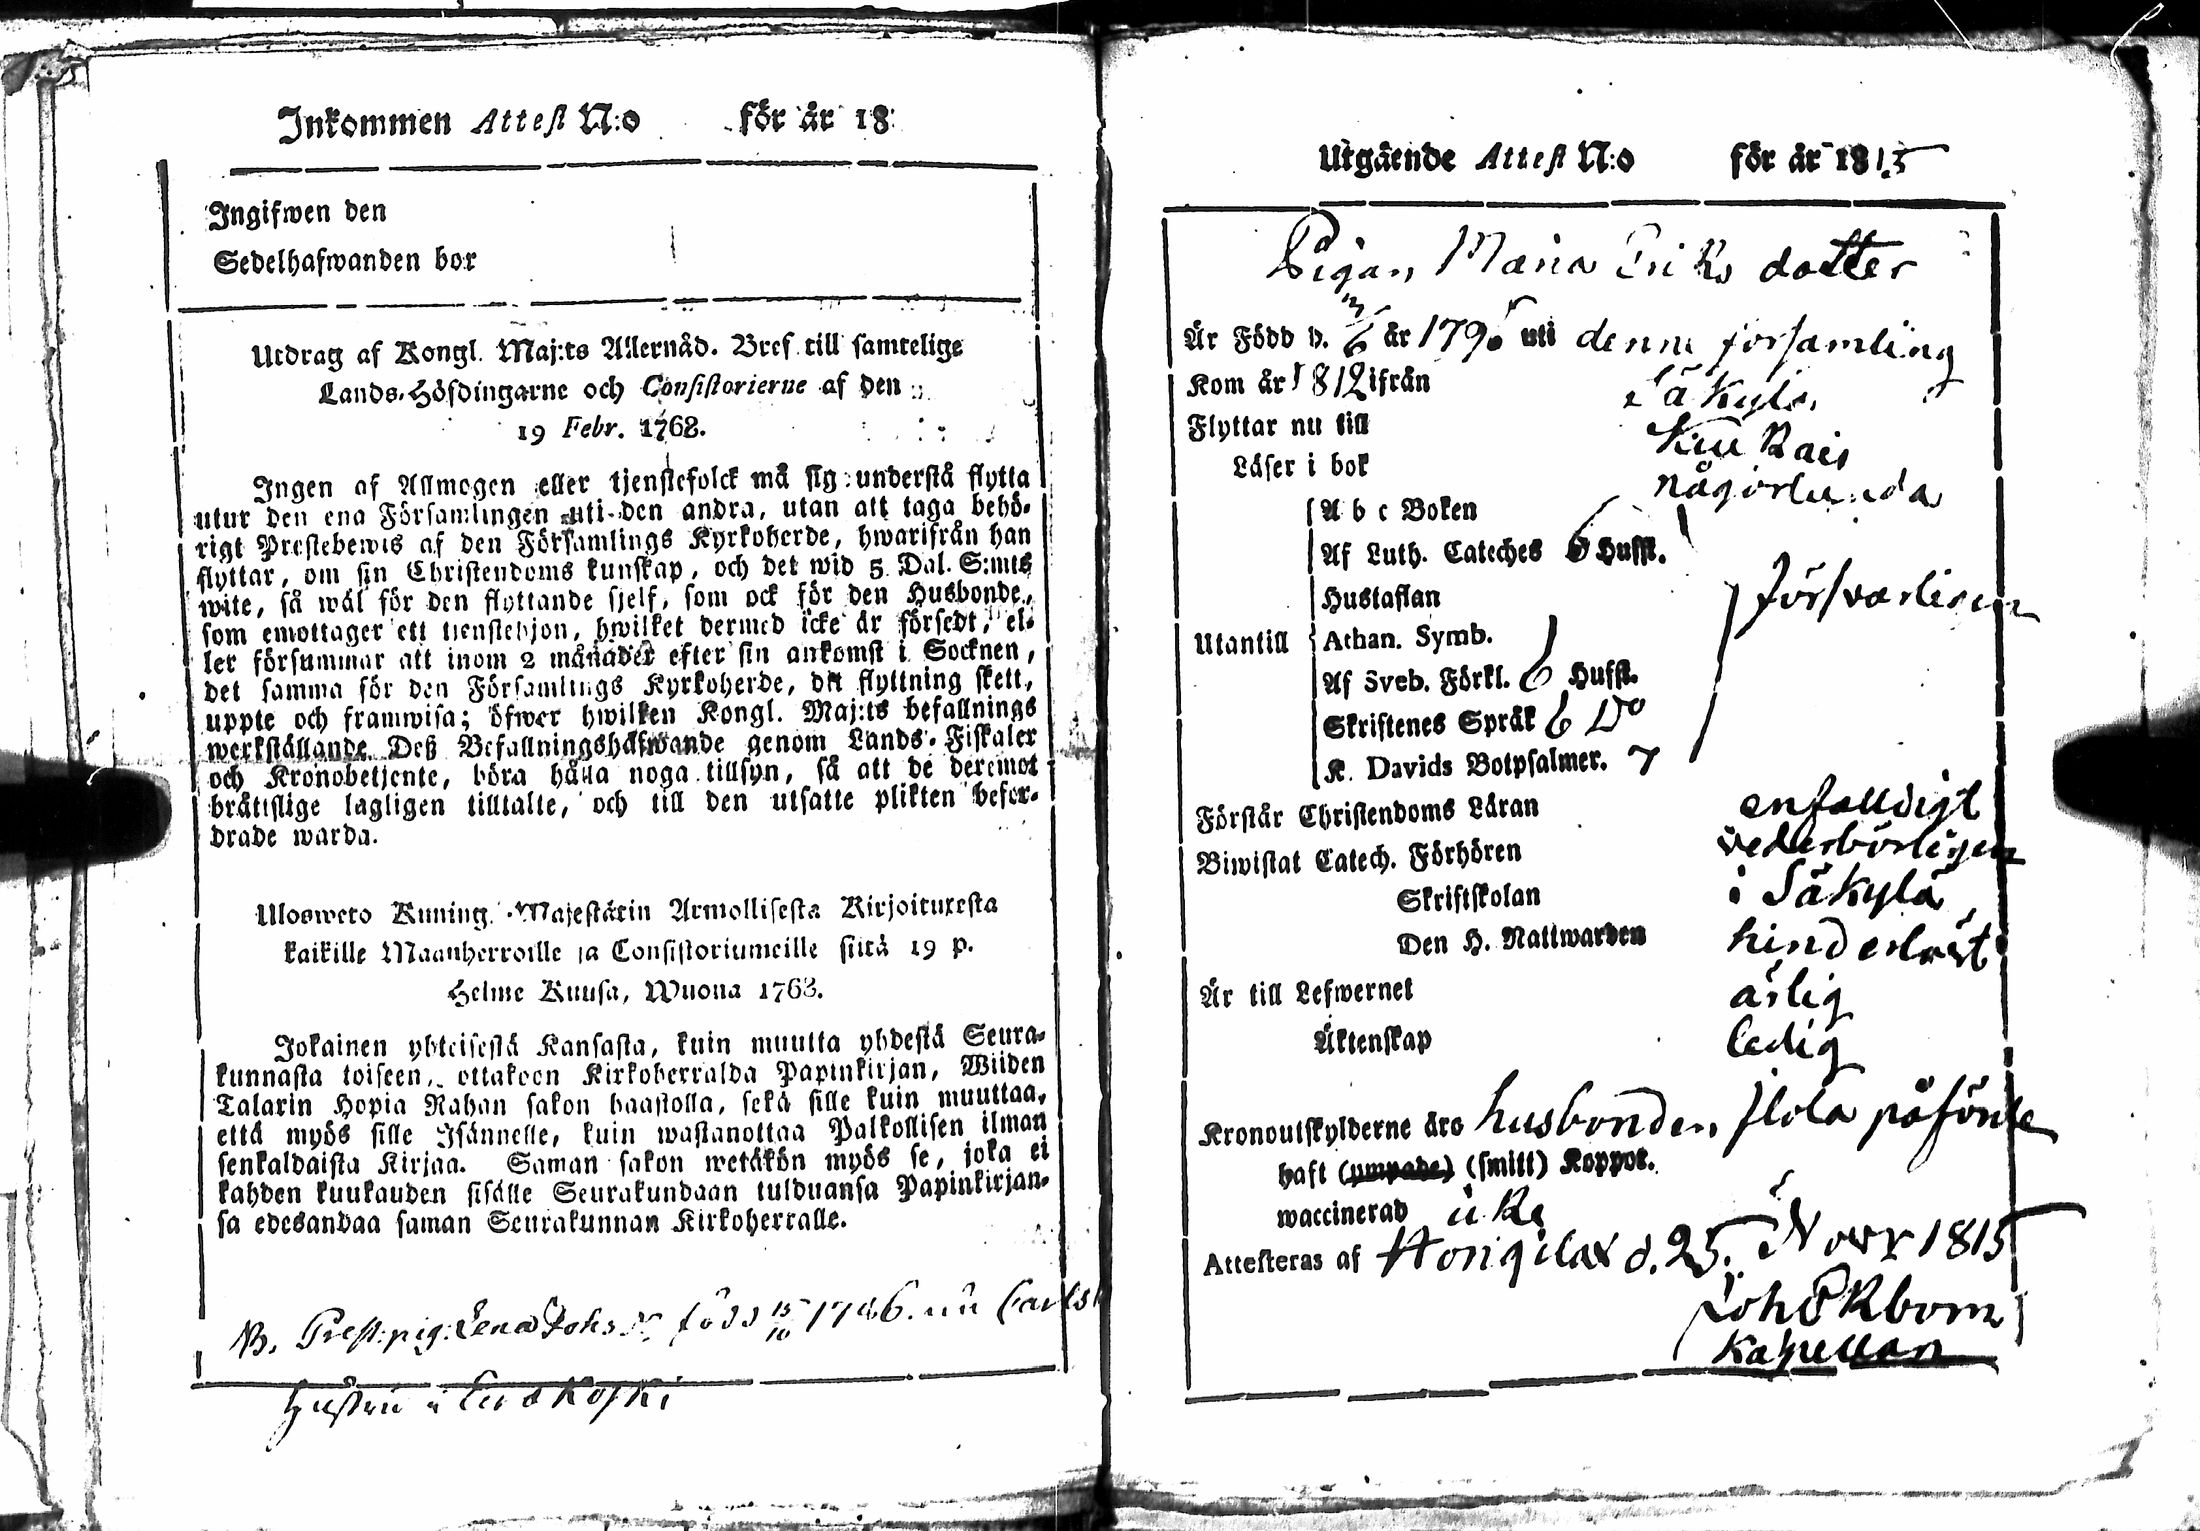 Inkommen Attest N:o för år 18
Ingifwen den
Sedelhafwanden bor
Utdrag af Kongl. Maj:ts Allernåd. Bref till samtelige
Lands-Höfdingarne och Consistorierne af den
19 Febr. 1768.
Ingen af Allmogen eller tjenstefolck må sig understå flytta
utur den ena Församlingen uti den andra, utan att taga behö-
rigt Prestebewis af den Församlings Kyrkoherde, hwarifrån han
flyttar, om sin Christendoms kunskap, och det wid 5 Dal. S:mts
wite, så wäl för den flyttande sjelf, som ock för den Husbonde,
som emottager ett tjenstehjon, hwilket dermed icke är försedt, el-
ler försummar att inom 2 månader efter sin ankomst i Socknen,
det samma för den Församlings Kyrkoherde, dit flyttning skett,
uppte och framwisa; öfwer hwilken Kongl. Maj:ts befallnings
werkställande Deß Befallningshafwande genom Lands-Fiskaler
och Kronobetjente, böra hålla noga tillsyn, så att de deremot
bråttslige lagligen tilltalte, och till den utsatte plikten befor-
drade warda.
Ulosweto Kuning. Majestätin Armollisesta Kirjoituxesta
kaikille Maanherroille ja Consistoriumeille siitä 19 p.
Helme Kuusa, Wuona 1768.
Jokainen yhteisestä Kansasta, kuin muutta yhdestä Seura-
kunnasta toiseen, ottakoon Kirkoherralda Papinkirjan, Wiiden
Talarin Hopia Rahan sakon haastolla, sekä sille kuin muuttaa,
että myös sille Isännelle, kuin wastanottaa Palkollisen ilman
senkaldaista Kirjaa. Saman sakon wetäkön myös se, joka ei
kahden kuukauden sisälle Seurakundaan tulduansa Papinkirjan-
sa edesandaa saman Seurakunnan Kirkoherralle.
NB. Prest.pig. Lena Johs född 15/10 17 6. nu Carls
hustru i
Utgående Attest N:o för år 1815
Pigan Maria Eriks dotter
Är Född d. 3/6 år 179 uti denna församling
Kom år 1812 ifrån Säkylä
Flyttar nu till Kiukais
Läser i bok någorlunda
A b c Boken
Af Luth. Cateches 6 Hufst.
Hustaflan försvarligen
Utantill Athan. Symb.
Af Sveb. Förkl. 6 Hufst.
Skriftenes Språk 6 Do
K. Davids Botpsalmer. 7
Förstår Christendoms Läran enfalldigt
Biwistat Catech. Förhören vederbörligen
Skriftskolan i Säkylä
Den H. Nattwarden hinderlöst
Är till Lefwernet ärlig
Äktenskap ledig
Kronoutskylderne äro husbonden Flola påförde
haft (ympade) (smitt) Koppor.
waccinerad icke
Attesteras af Hongilax d. 25. Novr 1815
Joh Ekbom
Kapellan